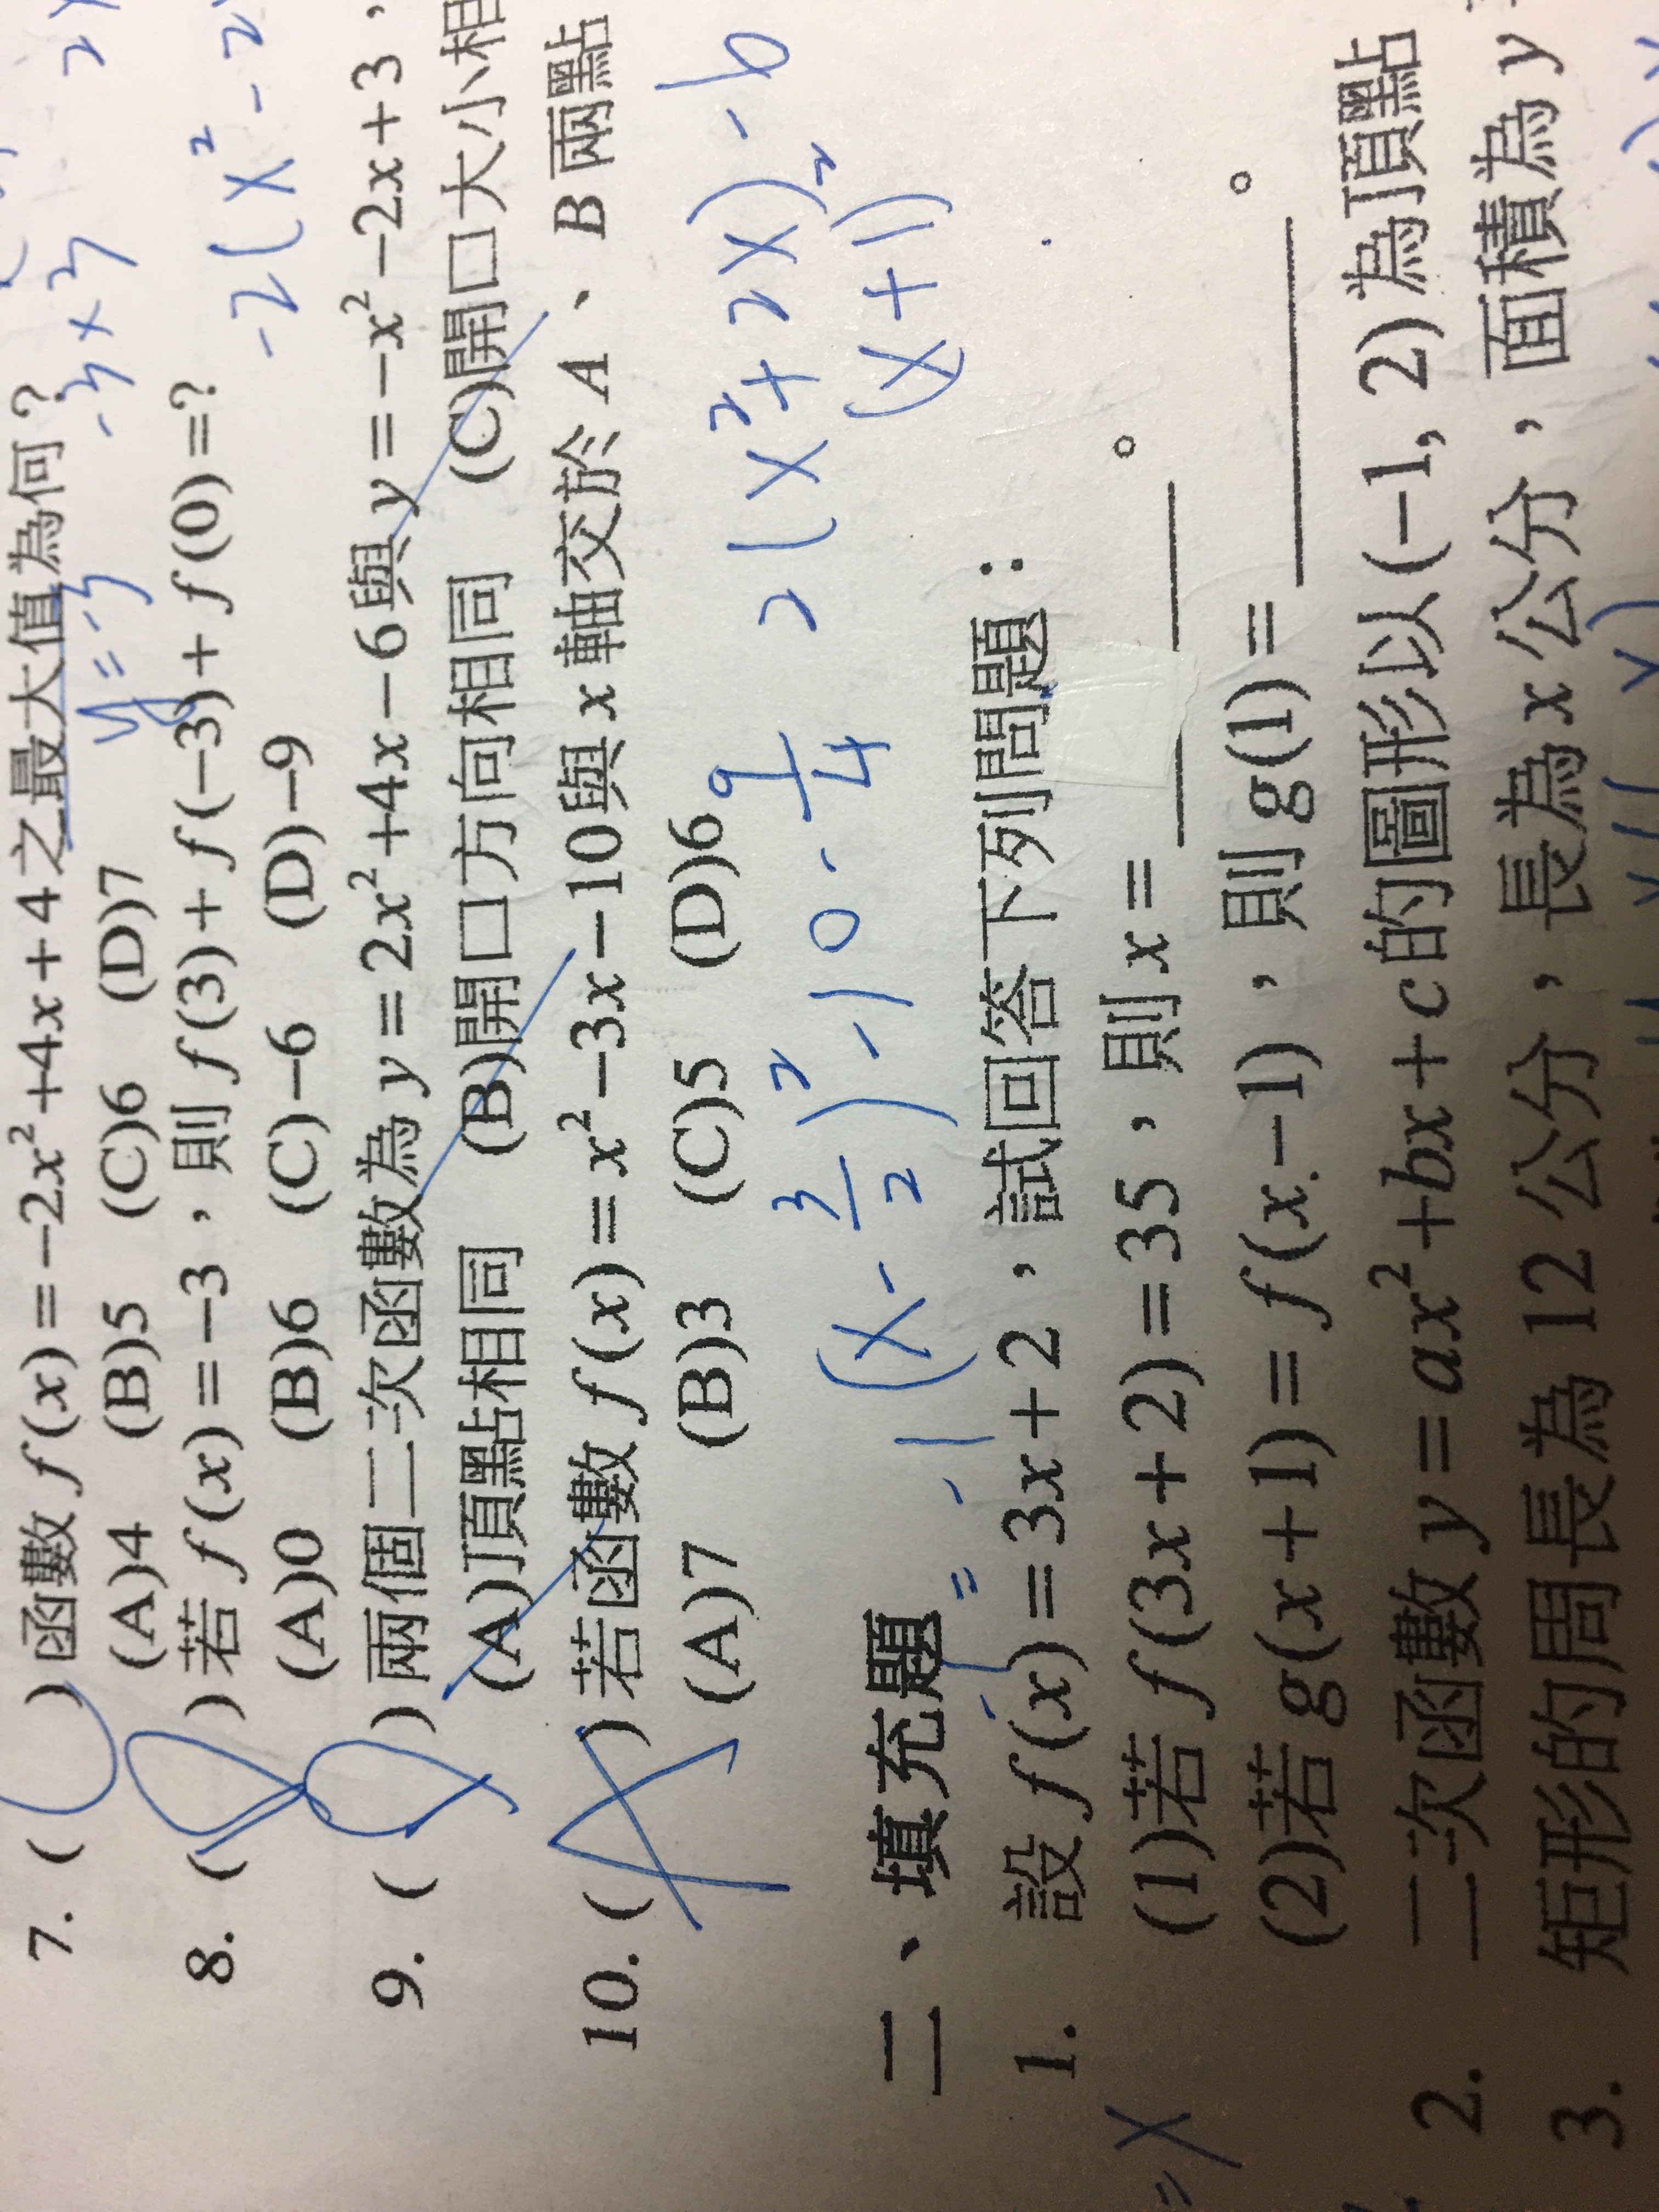 7. ( )函數 f(x)=−2x²+4x+4之最大值為何?
(A)4 (B)5 (C)6 (D)7
y=-3
-3×3
8. ( )若 f(x)=−3,則 f(3)+f(−3)+f(0)=?
(A)0 (B)6 (C)−6 (D)−9
-2(x²-2
9. ( )兩個二次函數為 y=2x²+4x−6與 y=−x²−2x+3,
(A)頂點相同 (B)開口方向相同 (C)開口大小相
10. ( A )若函數 f(x)=x²−3x−10與 x 軸交於 A、B 兩點
(A)7 (B)3 (C)5 (D)6
2(x²+2x)-6
(x+1)²
(x-3/2)²-10-9/4
二、填充題
1. 設 f(x)=3x+2,試回答下列問題:
(1)若 f(3x+2)=35,則 x=______。
(2)若 g(x+1)=f(x−1),則 g(1)=______。
2. 二次函數 y=ax²+bx+c 的圖形以(−1, 2)為頂點
3. 矩形的周長為 12 公分,長為 x 公分,面積為 y